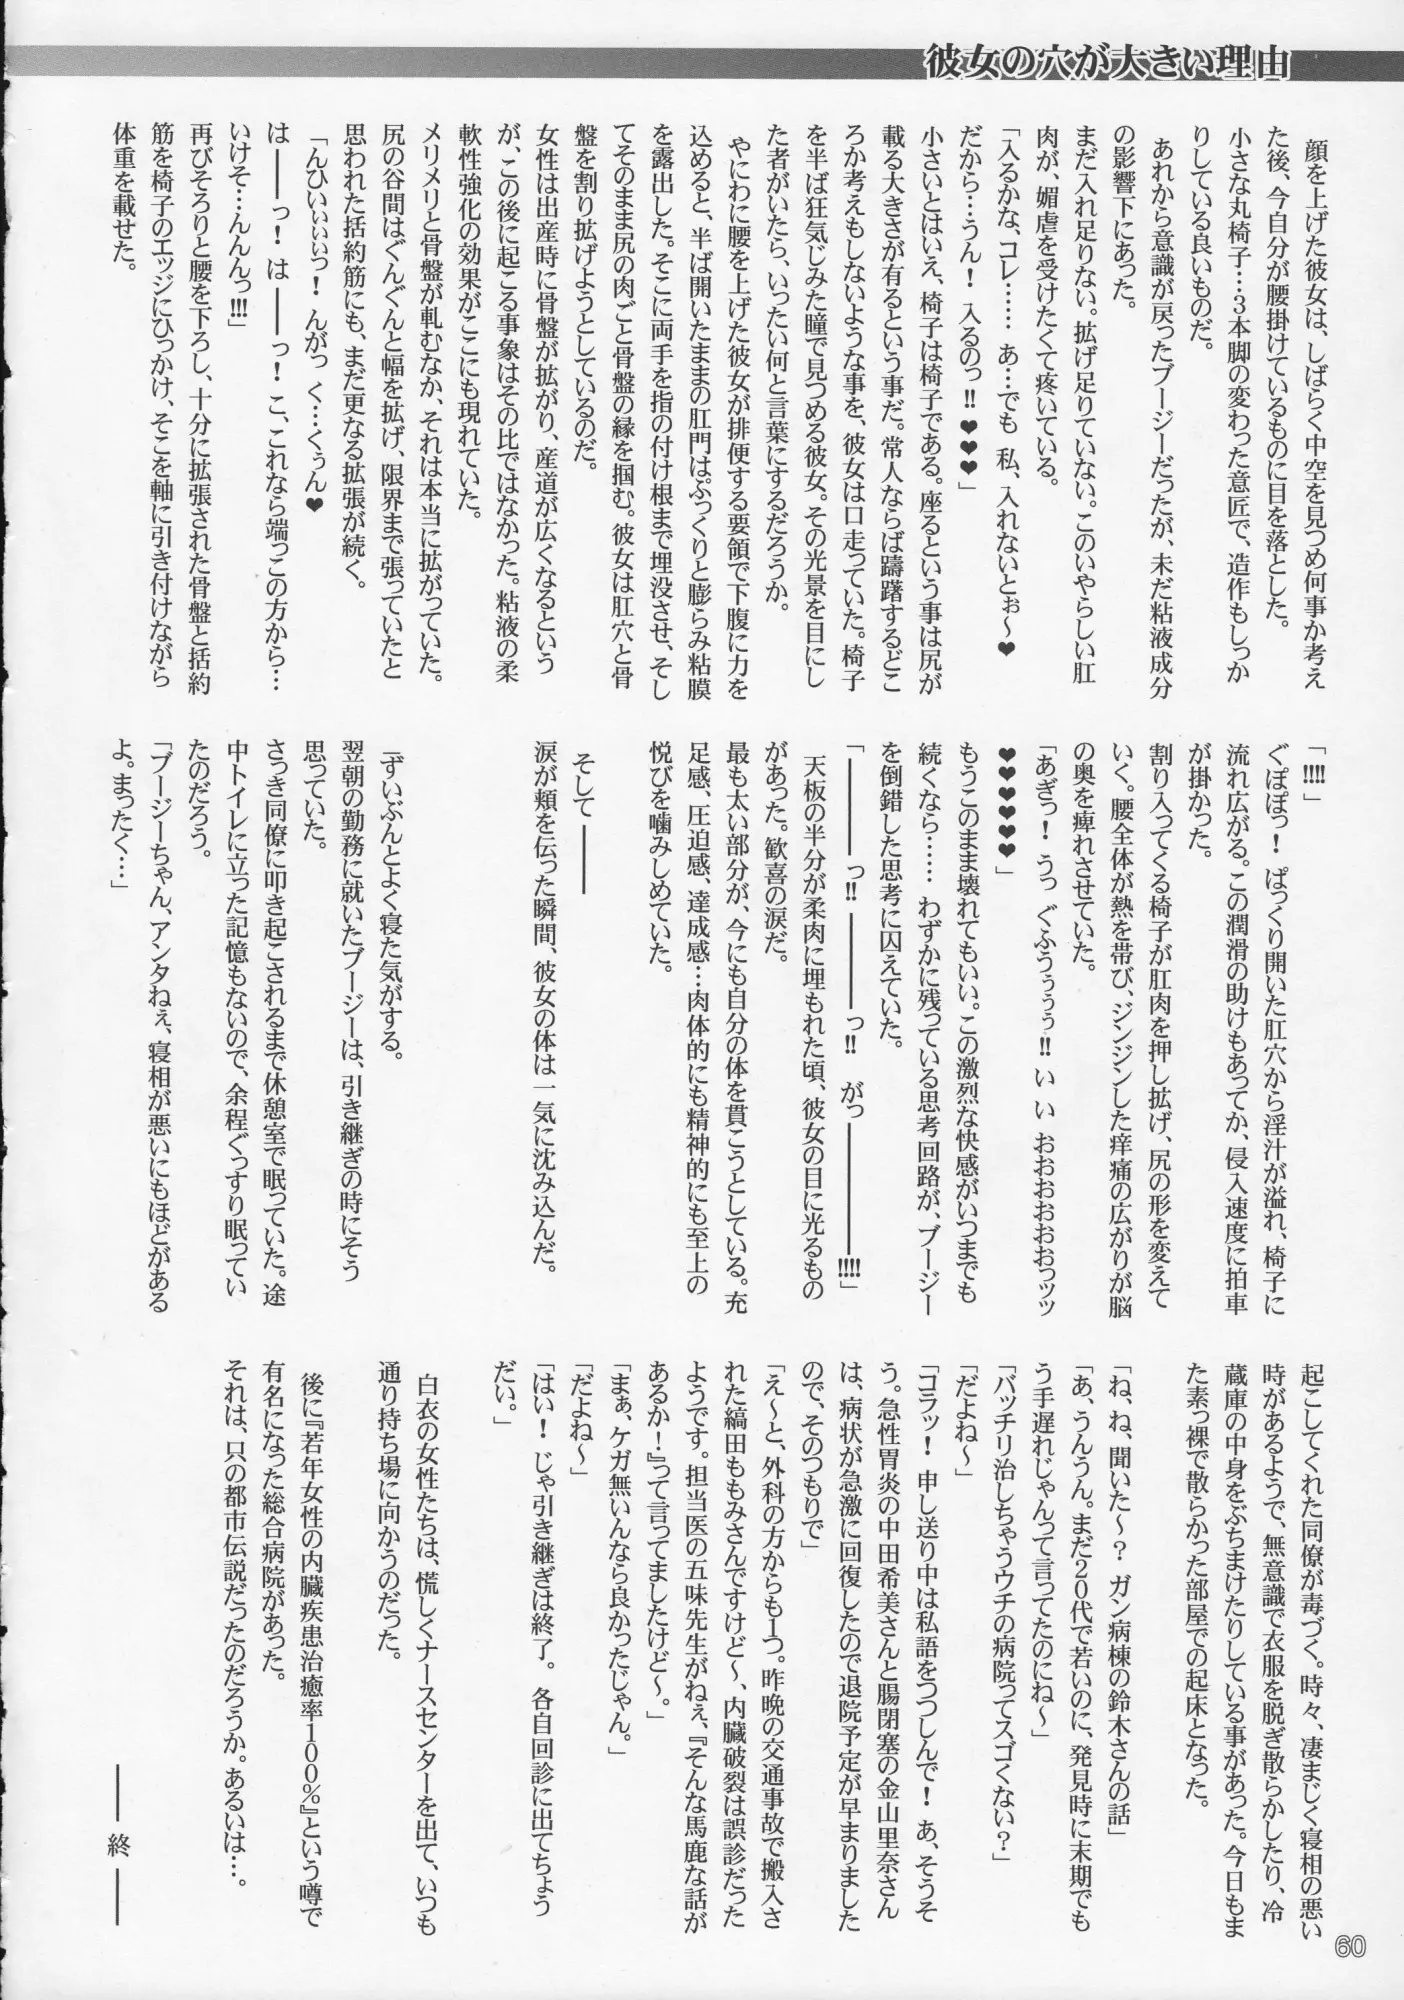 彼女の穴が大きい理由
顔を上げた彼女は、しばらく中空を見つめ何事か考え
た後、今自分が腰掛けているものに目を落とした。
小さな丸椅子…3本脚の変わった意匠で、造作もしっか
りしている良いものだ。
あれから意識が戻ったブージーだったが、未だ粘液成分
の影響下にあった。
まだ入れ足りない。拡げ足りていない。このいやらしい肛
肉が、媚虐を受けたくて疼いている。
「入るかな、コレ…… あ…でも 私、入れないとぉ～❤
だから…うん! 入るのっ!!❤❤❤」
小さいとはいえ、椅子は椅子である。座るという事は尻が
載る大きさが有るという事だ。常人ならば躊躇するどこ
ろか考えもしないような事を、彼女は口走っていた。椅子
を半ば狂気じみた瞳で見つめる彼女。その光景を目にし
た者がいたら、いったい何と言葉にするだろうか。
やにわに腰を上げた彼女が排便する要領で下腹に力を
込めると、半ば開いたままの肛門はぷっくりと膨らみ粘膜
を露出した。そこに両手を指の付け根まで埋没させ、そし
てそのまま尻の肉ごと骨盤の縁を掴む。彼女は肛穴と骨
盤を割り拡げようとしているのだ。
女性は出産時に骨盤が拡がり、産道が広くなるという
が、この後に起こる事象はその比ではなかった。粘液の柔
軟性強化の効果がここにも現れていた。
メリメリと骨盤が軋むなか、それは本当に拡がっていた。
尻の谷間はぐんぐんと幅を拡げ、限界まで張っていたと
思われた括約筋にも、まだ更なる拡張が続く。
「んひぃぃぃっ! んがっ く…くぅん❤
は――っ! は――っ! こ、これなら端っこの方から…
いけそ…んんんっ!!!」
再びそろりと腰を下ろし、十分に拡張された骨盤と括約
筋を椅子のエッジにひっかけ、そこを軸に引き付けながら
体重を載せた。
「!!!!」
ぐぽぽっ! ぱっくり開いた肛穴から淫汁が溢れ、椅子に
流れ広がる。この潤滑の助けもあってか、侵入速度に拍車
が掛かった。
割り入ってくる椅子が肛肉を押し拡げ、尻の形を変えて
いく。腰全体が熱を帯び、ジンジンした痒痛の広がりが脳
の奥を痺れさせていた。
「あぎっ! うっ ぐふぅぅぅ!! い い おおおおおおっッッ
❤❤❤❤❤❤」
もうこのまま壊れてもいい。この激烈な快感がいつまでも
続くなら…… わずかに残っている思考回路が、ブージー
を倒錯した思考に囚えていた。
「――――っ!! ――――っ!! がっ――――――!!!!」
天板の半分が柔肉に埋もれた頃、彼女の目に光るもの
があった。歓喜の涙だ。
最も太い部分が、今にも自分の体を貫こうとしている。充
足感、圧迫感、達成感…肉体的にも精神的にも至上の
悦びを噛みしめていた。
そして――――
涙が頬を伝った瞬間、彼女の体は一気に沈み込んだ。
『ずいぶんとよく寝た気がする。
翌朝の勤務に就いたブージーは、引き継ぎの時にそう
思っていた。
さっき同僚に叩き起こされるまで休憩室で眠っていた。途
中トイレに立った記憶もないので、余程ぐっすり眠ってい
たのだろう。
「ブージーちゃん、アンタねぇ、寝相が悪いにもほどがある
よ。まったく…」
起こしてくれた同僚が毒づく。時々、凄まじく寝相の悪い
時があるようで、無意識で衣服を脱ぎ散らかしたり、冷
蔵庫の中身をぶちまけたりしている事があった。今日もま
た素っ裸で散らかった部屋での起床となった。
「ね、ね、聞いた～? ガン病棟の鈴木さんの話」
「あ、うんうん。まだ20代で若いのに、発見時に末期でも
う手遅れじゃんって言ってたのにね～」
「バッチリ治しちゃうウチの病院ってスゴくない?」
「だよね～」
「コラッ! 申し送り中は私語をつつしんで! あ、そうそ
う。急性胃炎の中田希美さんと腸閉塞の金山里奈さん
は、病状が急激に回復したので退院予定が早まりました
ので、そのつもりで」
「え～と、外科の方からも1つ。昨晩の交通事故で搬入さ
れた縞田ももみさんですけど～、内臓破裂は誤診だった
ようです。担当医の五味先生がねぇ、『そんな馬鹿な話が
あるか!』って言ってましたけど～。」
「まぁ、ケガ無いんなら良かったじゃん。」
「だよね～」
「はい! じゃ引き継ぎは終了。 各自回診に出てちょう
だい。」
白衣の女性たちは、慌しくナースセンターを出て、いつも
通り持ち場に向かうのだった。
後に『若年女性の内臓疾患治癒率100%』という噂で
有名になった総合病院があった。
それは、只の都市伝説だったのだろうか。あるいは…。
――終――
60